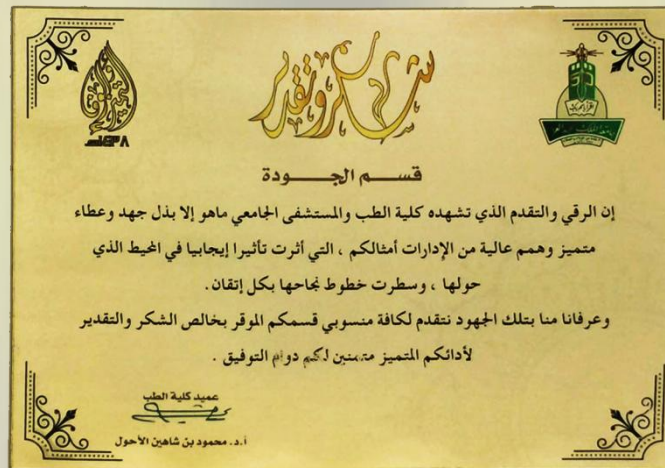 شكر وتقدير
١٤٣٨هـ
قســم الجــودة
إن الرقي والتقدم الذي تشهده كلية الطب والمستشفى الجامعي ماهو إلا بذل جهد وعطاء
متميز وهمم عالية من الإدارات أمثالكم ، التي أثرت تأثيرا إيجابيا في المحيط الذي
حولها ، وسطرت خطوط نجاحها بكل إتقان.
وعرفانا منا بتلك الجهود نتقدم لكافة منسوبي قسمكم الموقر بخالص الشكر والتقدير
لأدائكم المتميز متمنين لكم دوام التوفيق .
عميد كلية الطب
أ.د. محمود بن شاهين الأحول